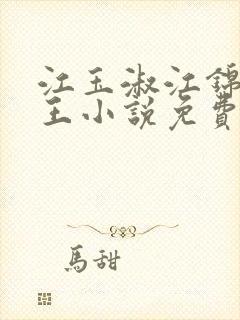 江玉淑江锦
王小説免費
馬甜